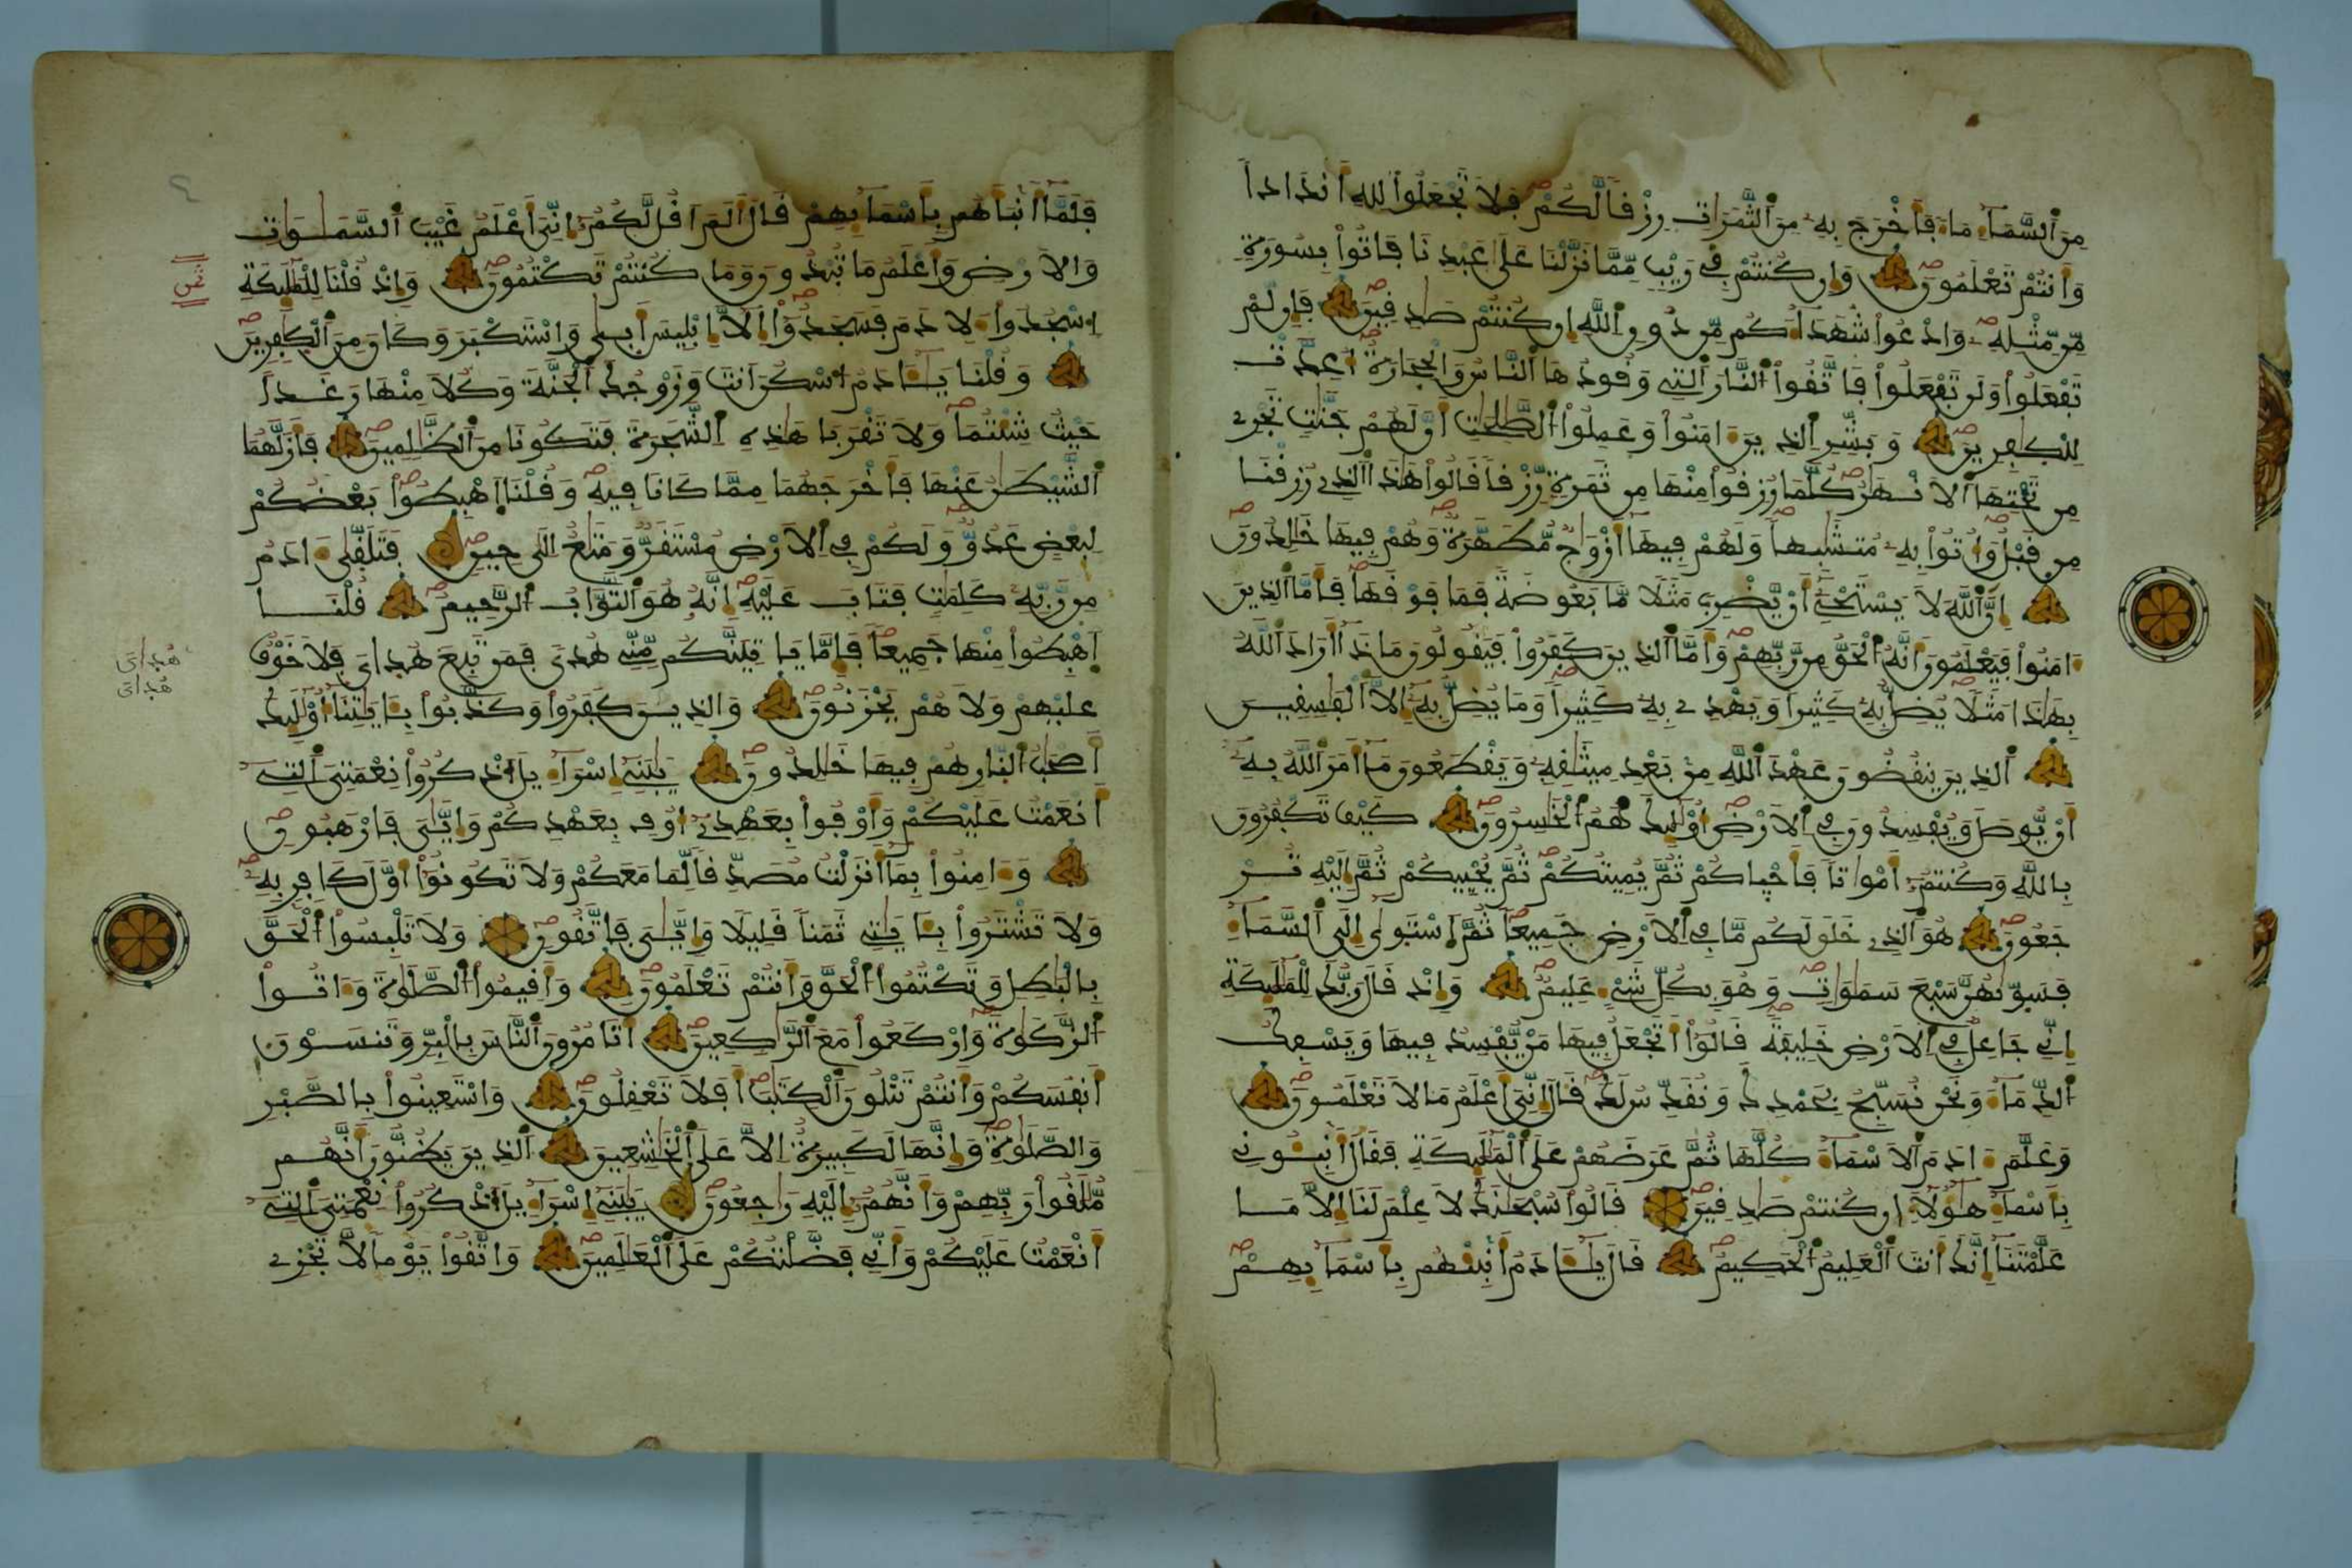 مِنَ اَ۬لسَّمَآءِ مَآءٗ فَأَخْرَجَ بِهِۦ مِنَ اَ۬لثَّمَرَٰتِ رِزْقاٗ لَّكُمْ فَلَا تَجْعَلُواْ لِلهِ أَندَاداٗ
وَأَنتُمْ تَعْلَمُونَ وَإِن كُنتُمْ فِے رَيْبٖ مِّمَّا نَزَّلْنَا عَلَىٰ عَبْدِنَا فَاتُواْ بِسُورَةٖ
مِّن مِّثْلِهِۦ وَادْعُواْ شُهَدَآءَكُم مِّن دُونِ اِ۬للَّهِ إِن كُنتُمْ صَٰدِقِينَ فَإِن لَّمْ
تَفْعَلُواْ وَلَن تَفْعَلُواْ فَاتَّقُواْ اُ۬لنَّارَ اَ۬لتِے وَقُودُهَا اَ۬لنَّاسُ وَالْحِجَارَةُ أُعِدَّتْ
لِلْكٰفِرِينَ وَبَشِّرِ اِ۬لذِينَ ءَامَنُواْ وَعَمِلُواْ اُ۬لصَّٰلِحَٰتِ أَنَّ لَهُمْ جَنَّٰتٖ تَجْرِے
مِن تَحْتِهَا اَ۬لَانْهَٰرُ كُلَّمَا رُزِقُواْ مِنْهَا مِن ثَمَرَةٖ رِّزْقاٗ قَالُواْ هَٰذَا اَ۬لذِے رُزِقْنَا
مِن قَبْلُ وَأُتُواْ بِهِۦ مُتَشَٰبِهاٗ وَلَهُمْ فِيهَا أَزْوَٰجٞ مُّطَهَّرَةٞ وَهُمْ فِيهَا خَٰلِدُونَ
إِنَّ اَ۬للَّهَ لَا يَسْتَحْيِۦٓ أَنْ يَّضْرِبَ مَثَلاٗ مَّا بَعُوضَةٗ فَمَا فَوْقَهَا فَأَمَّا اَ۬لذِينَ
ءَامَنُواْ فَيَعْلَمُونَ أَنَّهُ اُ۬لْحَقُّ مِن رَّبِّهِمْ وَأَمَّا اَ۬لذِينَ كَفَرُواْ فَيَقُولُونَ مَاذَا أَرَادَ اَ۬للَّهُ
بِهَٰذَا مَثَلاٗ يُضِلُّ بِهِۦ كَثِيراٗ وَيَهْدِے بِهِۦ كَثِيراٗ وَمَا يُضِلُّ بِهِۦٓ إِلَّا اَ۬لْفَٰسِقِينَ
اَ۬لذِينَ يَنقُضُونَ عَهْدَ اَ۬للَّهِ مِنۢ بَعْدِ مِيثَٰقِهِۦ وَيَقْطَعُونَ مَآ أَمَرَ اَ۬للَّهُ بِهِۦٓ
أَنْ يُّوصَلَ وَيُفْسِدُونَ فِے اِ۬لَارْضِ أُوْلَٰٓئِكَ هُمُ اُ۬لْخَٰسِرُونَ كَيْفَ تَكْفُرُونَ
بِاللَّهِ وَكُنتُمُۥٓ أَمْوَٰتاٗ فَأَحْيٰكُمْ ثُمَّ يُمِيتُكُمْ ثُمَّ يُحْيِيكُمْ ثُمَّ إِلَيْهِ تُرْ
جَعُونَ هُوَ اَ۬لذِے خَلَقَ لَكُم مَّا فِے اِ۬لَارْضِ جَمِيعاٗ ثُمَّ اَ۪سْتَوٰىٓ إِلَى اَ۬لسَّمَآءِ
فَسَوّٰىٰهُنَّ سَبْعَ سَمَٰوَٰتٖ وَهُوَ بِكُلِّ شَےْءٍ عَلِيمٞ وَإِذْ قَالَ رَبُّكَ لِلْمَلَٰٓئِكَةِ
إِنِّے جَاعِلٞ فِے اِ۬لَارْضِ خَلِيفَةٗ قَالُوٓاْ أَتَجْعَلُ فِيهَا مَنْ يُّفْسِدُ فِيهَا وَيَسْفِكُ
اُ۬لدِّمَآءَ وَنَحْنُ نُسَبِّحُ بِحَمْدِكَ وَنُقَدِّسُ لَكَ قَالَ إِنِّيَ أَعْلَمُ مَا لَا تَعْلَمُونَ
وَعَلَّمَ ءَادَمَ اَ۬لَاسْمَآءَ كُلَّهَا ثُمَّ عَرَضَهُمْ عَلَى اَ۬لْمَلَٰٓئِكَةِ فَقَالَ أَنۢبِـُٔونِے
بِأَسْمَآءِ هَٰٓؤُلَآءِ ان كُنتُمْ صَٰدِقِينَ قَالُواْ سُبْحَٰنَكَ لَا عِلْمَ لَنَآ إِلَّا مَا
عَلَّمْتَنَآ إِنَّكَ أَنتَ اَ۬لْعَلِيمُ اُ۬لْحَكِيمُ قَالَ يَٰٓـَٔادَمُ أَنۢبِئْهُم بِأَسْمَآئِهِمْ
فَلَمَّآ أَنۢبَأَهُم بِأَسْمَآئِهِمْ قَالَ أَلَمَ اَقُل لَّكُمُۥٓ إِنِّيَ أَعْلَمُ غَيْبَ اَ۬لسَّمَٰوَٰتِ
وَالَارْضِ وَأَعْلَمُ مَا تُبْدُونَ وَمَا كُنتُمْ تَكْتُمُونَ وَإِذْ قُلْنَا لِلْمَلَٰٓئِكَةِ
ثمن
اِ۟سْجُدُواْ لِأٓدَمَ فَسَجَدُوٓاْ إِلَّآ إِبْلِيسَ أَبٜىٰ وَاسْتَكْبَرَ وَكَانَ مِنَ اَ۬لْكٰفِرِينَ
وَقُلْنَا يَٰٓـَٔادَمُ اُ۟سْكُنَ اَنتَ وَزَوْجُكَ اَ۬لْجَنَّةَ وَكُلَا مِنْهَا رَغَداً
حَيْثُ شِئْتُمَا وَلَا تَقْرَبَا هَٰذِهِ اِ۬لشَّجَرَةَ فَتَكُونَا مِنَ اَ۬لظَّٰلِمِينَ فَأَزَلَّهُمَا
اَ۬لشَّيْطَٰنُ عَنْهَا فَأَخْرَجَهُمَا مِمَّا كَانَا فِيهِ وَقُلْنَا اَ۪هْبِطُواْ بَعْضُكُمْ
لِبَعْضٍ عَدُوّٞ وَلَكُمْ فِے اِ۬لَارْضِ مُسْتَقَرّٞ وَمَتَٰعٌ اِلَىٰ حِينٖ فَتَلَقّٰىٓ ءَادَمُ
مِن رَّبِّهِۦ كَلِمَٰتٖ فَتَابَ عَلَيْهِ إِنَّهُۥ هُوَ اَ۬لتَّوَّابُ اُ۬لرَّحِيمُ قُلْنَا
اَ۪هْبِطُواْ مِنْهَا جَمِيعاٗ فَإِمَّا يَاتِيَنَّكُم مِّنِّے هُدٗى فَمَن تَبِعَ هُداىَ فَلَا خَوْفٌ
هُداىَ
هُداىَ
عَلَيْهِمْ وَلَا هُمْ يَحْزَنُونَ وَالذِينَ كَفَرُواْ وَكَذَّبُواْ بِـَٔايَٰتِنَآ أُوْلَٰٓئِكَ
أَصْحَٰبُ اُ۬لنَّارِ هُمْ فِيهَا خَٰلِدُونَ يَٰبَنِےٓ إِسْرَآءِيلَ اَ۟ذْكُرُواْ نِعْمَتِيَ اَ۬لتِےٓ
أَنْعَمْتُ عَلَيْكُمْ وَأَوْفُواْ بِعَهْدِےٓ أُوفِ بِعَهْدِكُمْ وَإِيَّٰيَ فَارْهَبُونِ
وَءَامِنُواْ بِمَآ أَنزَلْتُ مُصَدِّقاٗ لِّمَا مَعَكُمْ وَلَا تَكُونُوٓاْ أَوَّلَ كَافِرِۢ بِهِۦ
وَلَا تَشْتَرُواْ بِـَٔايَٰتِے ثَمَناٗ قَلِيلاٗ وَإِيَّٰيَ فَاتَّقُونِ وَلَا تَلْبِسُواْ اُ۬لْحَقَّ
بِالْبَٰطِلِ وَتَكْتُمُواْ اُ۬لْحَقَّ وَأَنتُمْ تَعْلَمُونَ وَأَقِيمُواْ اُ۬لصَّلَوٰةَ وَءَاتُواْ
اُ۬لزَّكَوٰةَ وَارْكَعُواْ مَعَ اَ۬لرَّٰكِعِينَ أَتَامُرُونَ اَ۬لنَّاسَ بِالْبِرِّ وَتَنسَوْنَ
أَنفُسَكُمْ وَأَنتُمْ تَتْلُونَ اَ۬لْكِتَٰبَ أَفَلَا تَعْقِلُونَ وَاسْتَعِينُواْ بِالصَّبْرِ
وَالصَّلَوٰةِ وَإِنَّهَا لَكَبِيرَةٌ اِلَّا عَلَى اَ۬لْخَٰشِعِينَ اَ۬لذِينَ يَظُنُّونَ أَنَّهُم
مُّلَٰقُواْ رَبِّهِمْ وَأَنَّهُمُۥٓ إِلَيْهِ رَٰجِعُونَ يَٰبَنِےٓ إِسْرَآءِيلَ اَ۟ذْكُرُواْ نِعْمَتِيَ اَ۬لتِےٓ
أَنْعَمْتُ عَلَيْكُمْ وَأَنِّے فَضَّلْتُكُمْ عَلَى اَ۬لْعَٰلَمِينَ وَاتَّقُواْ يَوْماٗ لَّا تَجْزِے